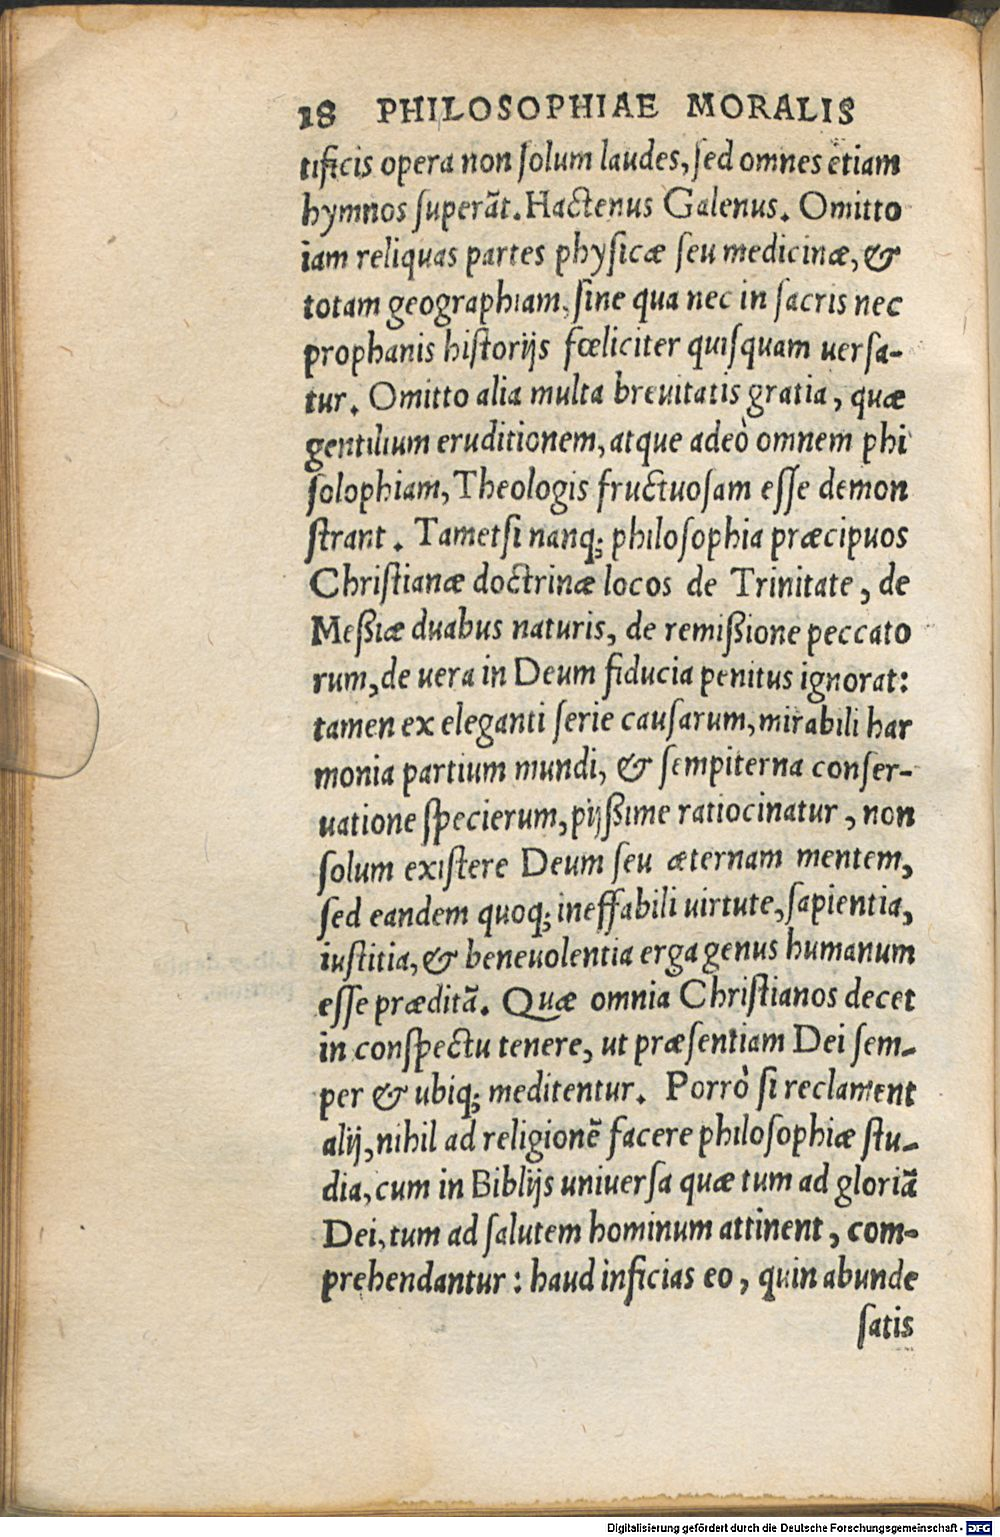 18 PHILOSOPHIAE MORALIS
tificis opera non ſolum laudes, ſed omnes etiam
hymnos ſuperãt. Hactenus Galenus. Omitto
iam reliquas partes phyſicæ ſeu medicinæ, &
totam geographiam, ſine qua nec in ſacris nec
prophanis hiſtorijs fœliciter quiſquam uerſa-
tur. Omitto alia multa breuitatis gratia, quæ
gentilium eruditionem, atque adeò omnem phi
ſolophiam, Theologis fructuoſam eſſe demon
ſtrant. Tametſi nanq; philoſophia præcipuos
Chriſtianæ doctrinæ locos de Trinitate, de
Meßiæ duabus naturis, de remißione peccato
rum, de uera in Deum fiducia penitus ignorat:
tamen ex eleganti ſerie cauſarum, mirabili har
monia partium mundi, & ſempiterna conſer-
uatione ſpecierum, pijßime ratiocinatur, non
ſolum exiſtere Deum ſeu æternam mentem,
ſed eandem quoq; ineffabili uirtute, ſapientia,
iuſtitia, & beneuolentia erga genus humanum
eſſe præditã. Quæ omnia Chriſtianos decet
in conſpectu tenere, ut præſentiam Dei ſem-
per & ubiq; meditentur. Porrò ſi reclament
alij, nihil ad religionẽ facere philoſophiæ ſtu-
dia, cum in Biblijs uniuerſa quæ tum ad gloriã
Dei, tum ad ſalutem hominum attinent, com-
prehendantur: haud inficias eo, quin abunde
ſatis
Digitalisierung gefördert durch die Deutsche Forschungsgemeinschaft - DFG